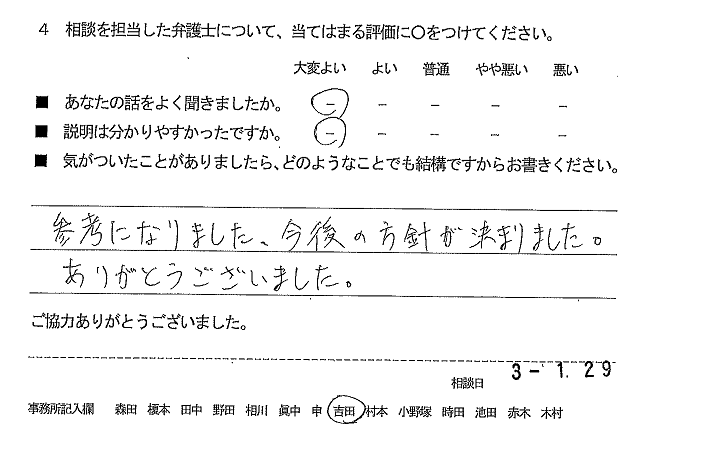 4 相談を担当した弁護士について、当てはまる評価に〇をつけてください。
大変よい よい 普通 やや悪い 悪い
■ あなたの話をよく聞きましたか。 － － － － －
■ 説明は分かりやすかったですか。 － － － － －
■ 気がついたことがありましたら、どのようなことでも結構ですからお書きください。
参考になりました、今後の方針が決まりました。
ありがとうございました。
ご協力ありがとうございました。
相談日 3－1.29
事務所記入欄 森田 榎本 田中 野田 相川 眞中 申 吉田 村本 小野塚 時田 池田 赤木 木村